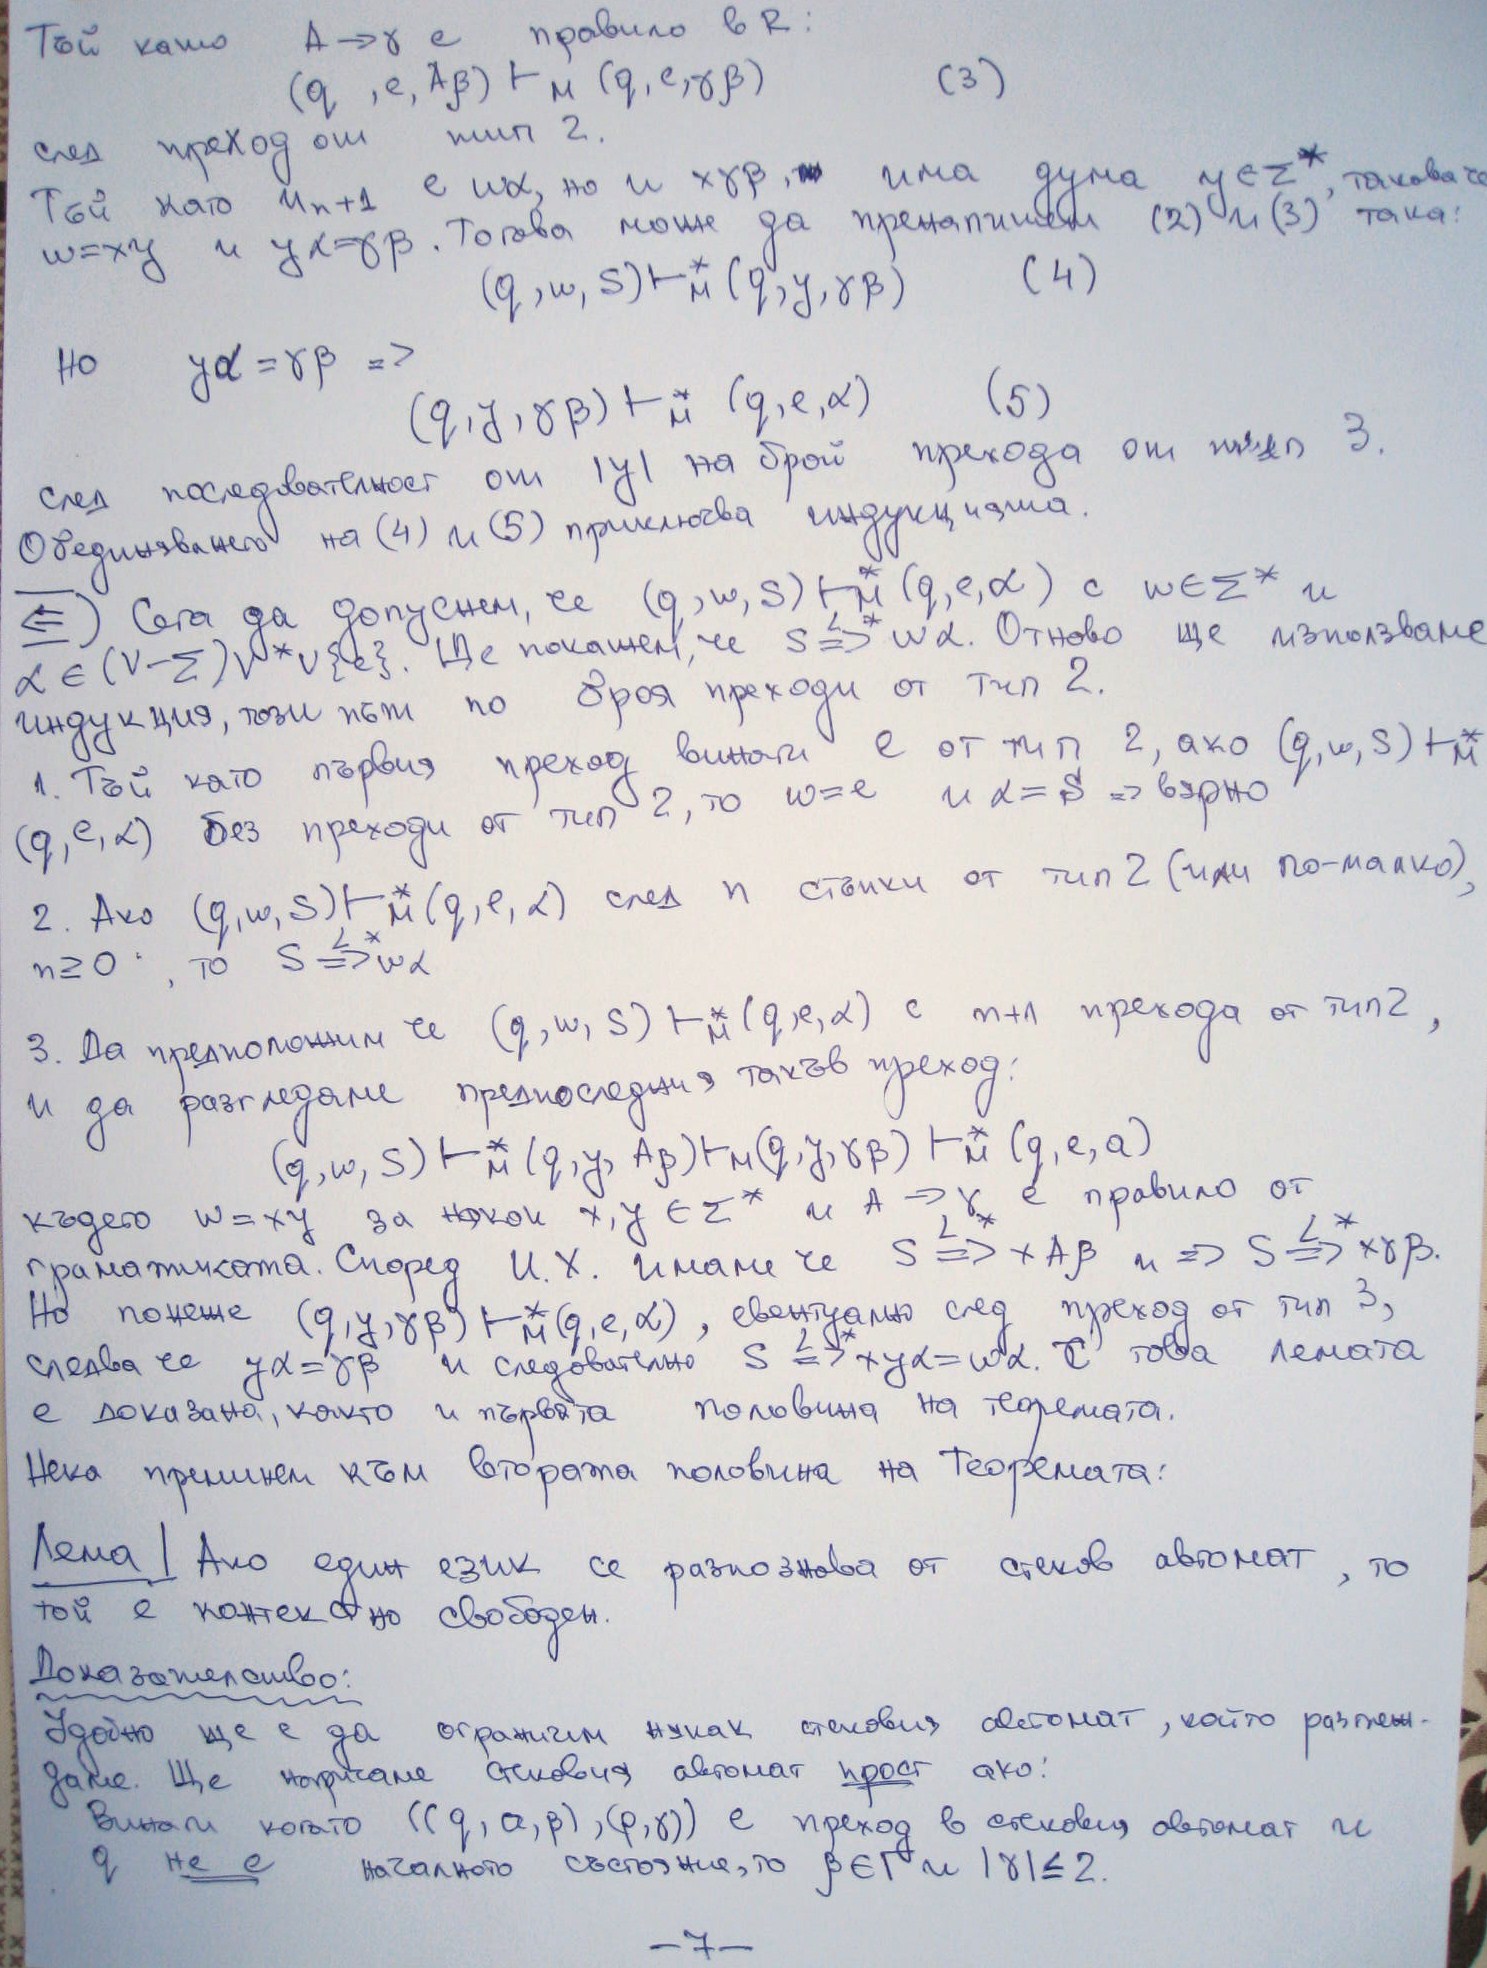 Тъй като A→γ е правило в R:
(q, e, Aβ) ⊢M (q, e, γβ) (3)
след преход от тип 2.
Тъй като un+1 е wα, но и xγβ, има дума y∈Σ*, такова че
w=xy и yα=γβ. Тогава може да препишем (2) и (3) така:
(q, w, S) ⊢*M (q, y, γβ) (4)
Но yα = γβ =>
(q, y, γβ) ⊢*M (q, e, α) (5)
след последователност от |y| на брой прехода от тип 3.
Обединяването на (4) и (5) приключва индукцията.
<=) Сега да допуснем, че (q, w, S) ⊢*M (q, e, α) с w∈Σ* и
α ∈ (V−Σ)V*∪{e}. Ще покажем, че S L=>* wα. Отново ще използваме
индукция, този път по броя преходи от тип 2.
1. Тъй като първия преход винаги е от тип 2, ако (q, w, S) ⊢*M
(q, e, α) без преходи от тип 2, то w=e и α=S => вярно
2. Ако (q, w, S) ⊢*M (q, e, α) след n стъпки от тип 2 (или по-малко),
n≥0, то S L=>* wα
3. Да предположим че (q, w, S) ⊢*M (q, e, α) с n+1 прехода от тип 2,
и да разгледаме предпоследния такъв преход:
(q, w, S) ⊢*M (q, y, Aβ) ⊢M (q, y, γβ) ⊢*M (q, e, a)
където w=xy за някои x, y ∈ Σ* и A → γ е правило от
граматиката. Според И.Х. имаме че S L=>* xAβ и => S L=>* xγβ.
Но понеже (q, y, γβ) ⊢*M (q, e, α), евентуално след преход от тип 3,
следва че yα=γβ и следователно S L=>* xyα=wα. С това лемата
е доказана, както и първата половина на теоремата.
Нека преминем към втората половина на Теоремата:
Лема | Ако един език се разпознава от стеков автомат, то
той е контекстно свободен.
Доказателство:
Удобно ще е да ограничим някак стековия автомат, който разглеж-
даме. Ще наричаме стековия автомат прост ако:
Винаги когато ((q, a, β), (p, γ)) е преход в стековия автомат и
q не е началното състояние, то β∈Γ и |γ|≤2.
–7–